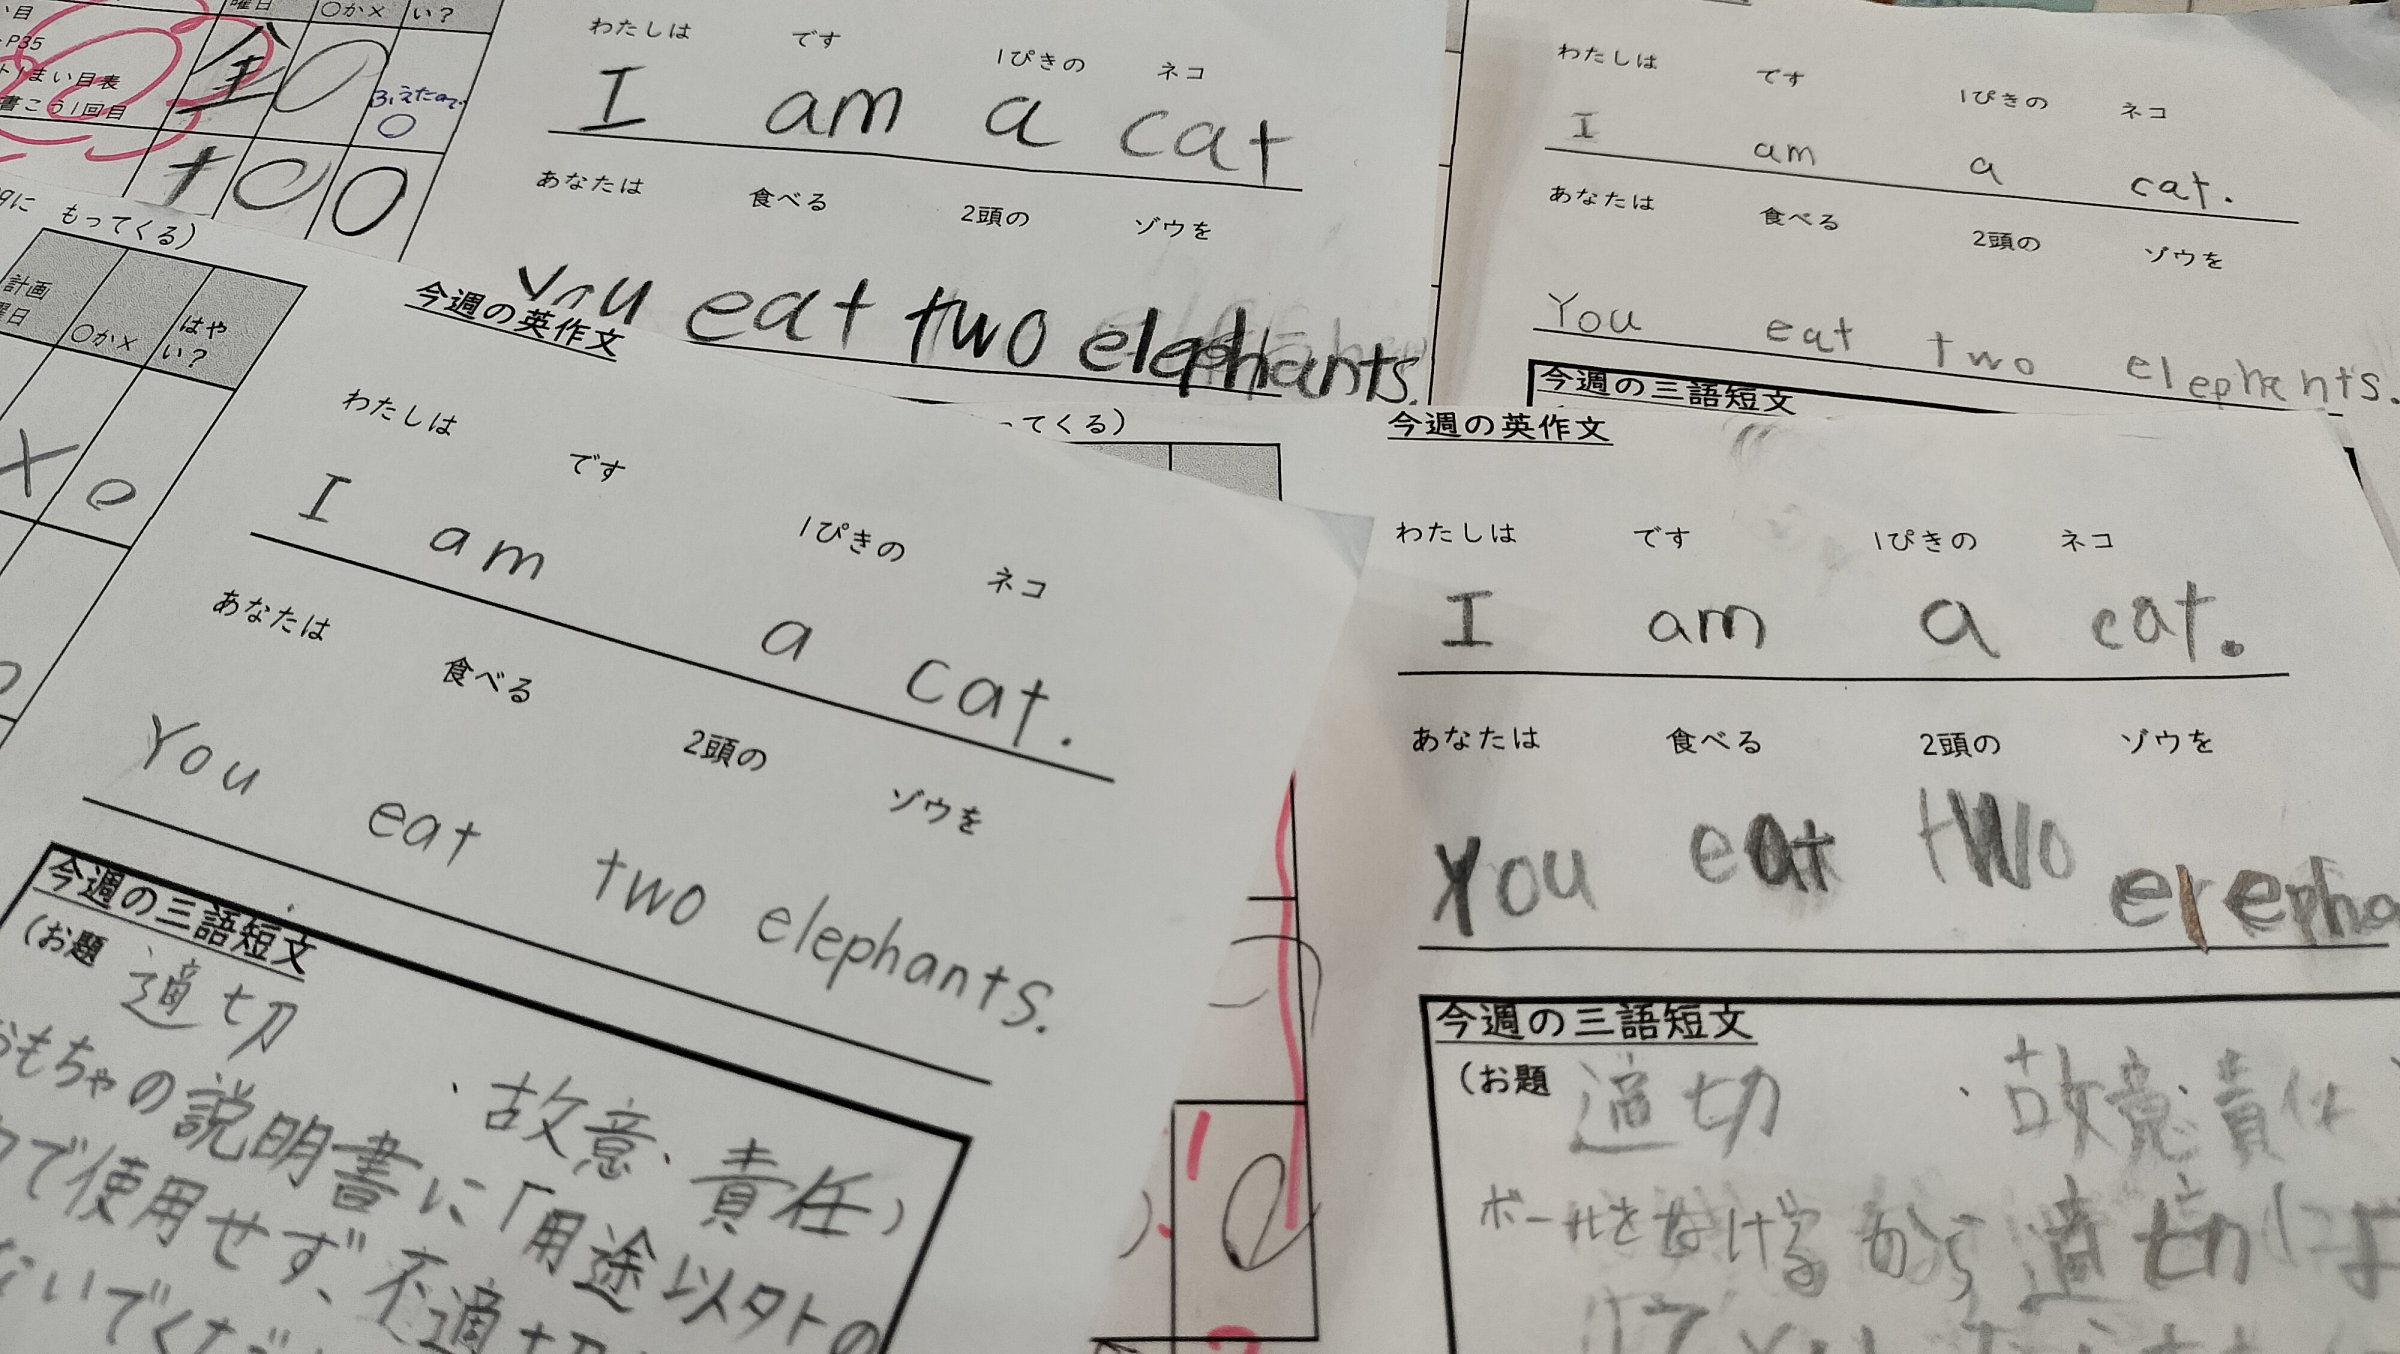 い目
P35
まい目表
書こう1回目
曜日
○か×
い?
金
○
ふえたので
○
土
○
○
もってくる)
計画
曜日
○か×
はや
い?
×
○
わたしは です 1ぴきの ネコ
I am a cat
あなたは 食べる 2頭の ゾウを
You eat two elephants.
わたしは です 1ぴきの ネコ
I am a cat.
あなたは 食べる 2頭の ゾウを
You eat two elephants.
今週の三語短文
てくる)
今週の英作文
わたしは です 1ぴきの ネコ
I am a cat.
あなたは 食べる 2頭の ゾウを
You eat two elephants.
今週の三語短文
(お題 適切 ・故意・責任)
おもちゃの説明書に「用途以外の
で使用せず、不適切
ないでくだ
今週の英作文
わたしは です 1ぴきの ネコ
I am a cat.
あなたは 食べる 2頭の ゾウを
You eat two elepha
今週の三語短文
(お題 適切 ・故意・責任
ボールをなげるから適切によ